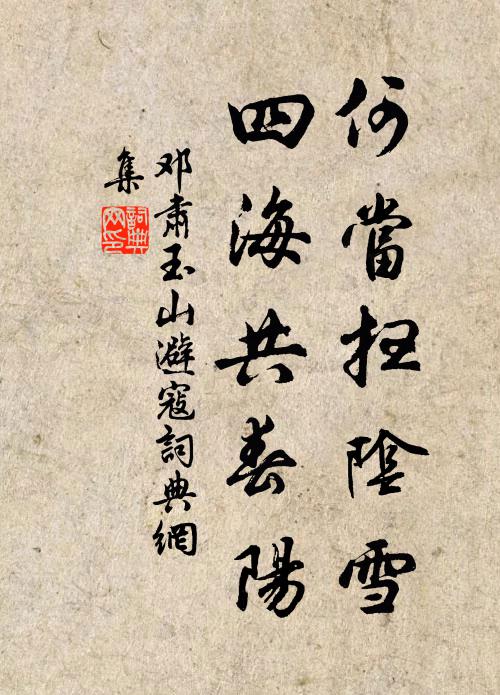 何當扫陰雪
四海共春陽
邓肅玉山避寇詞典網
集
詞典網印